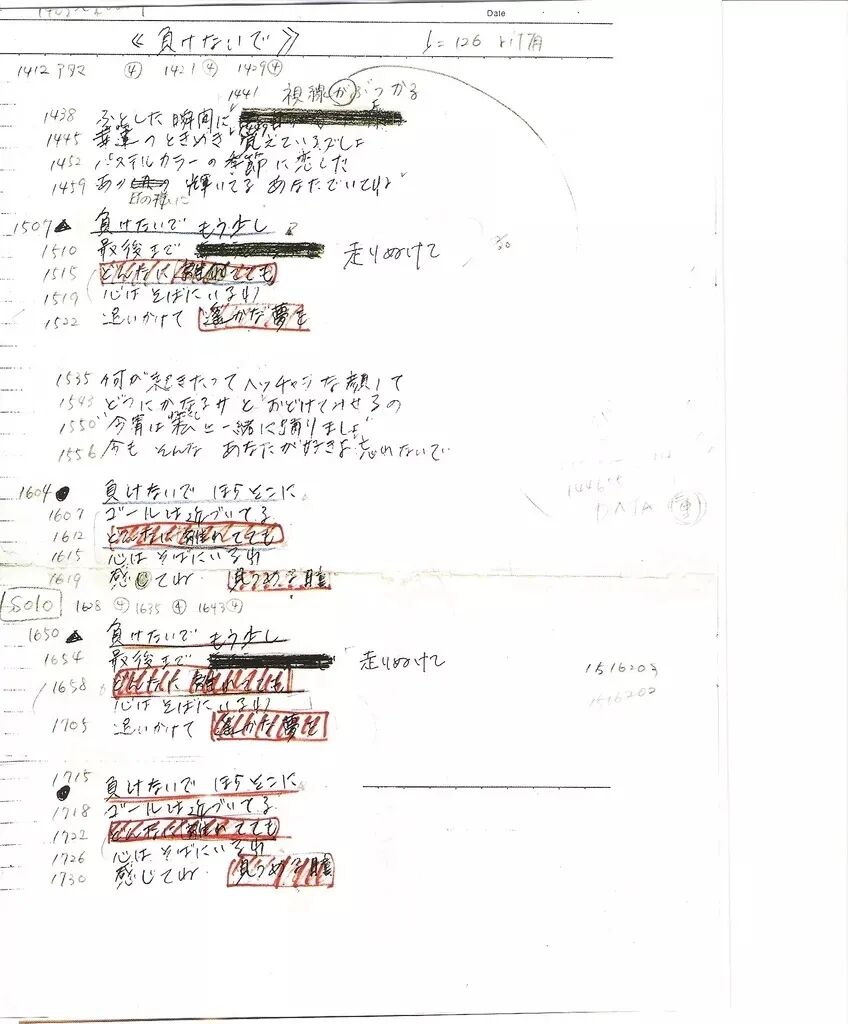 Date
《負けないで》 ♩=126
1412 アタマ ④ 1421 ④ 1429 ④
1441 視線がぶつかる
1438 ふとした瞬間に
1445 幸運のときめき 覚えているでしょ
1452 パステルカラーの季節に恋した
1459 あの 輝いてる あなたでいてね
日の様に
1507 ▲ 負けないで もう少し
1510 最後まで 走りぬけて
1515 どんなに 離れてても
1519 心は そばにいるわ
1522 追いかけて 遥かな夢を
1535 何が起きたって ヘッチャラな顔して
1543 どうにかなるサと おどけてみせるの
1550 "今宵は私と一緒に踊りましょ"
1556 今も そんな あなたが好きよ 忘れないで
1604 ● 負けないで ほらそこに
1607 ゴールは近づいてる
1612 どんなに離れてても
1615 心は そばにいるわ
1619 感じてね 見つめる瞳
DATA
Solo 1628 ④ 1635 ④ 1643 ④
1650 ▲ 負けないで もう少し
1654 最後まで 走りぬけて
1516203
1516202
1658 どんなに 離れてても
心は そばにいるわ
1705 追いかけて 遥かな夢を
1715 ● 負けないで ほらそこに
1718 ゴールは近づいてる
1722 どんなに離れてても
1726 心は そばにいるわ
1730 感じてね 見つめる瞳